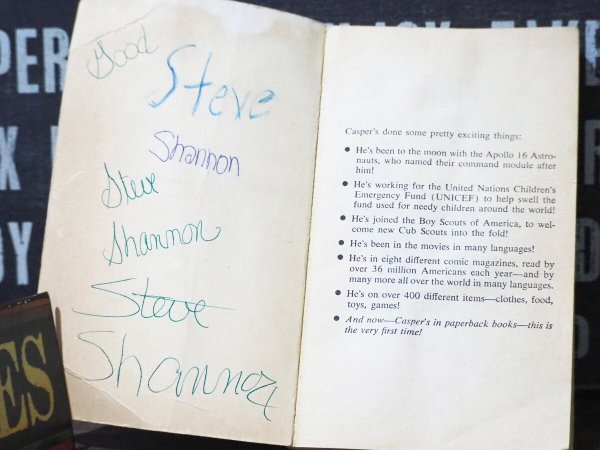 Good
Steve
Shannon
Steve
Shannon
Steve
Shannon
Casper's done some pretty exciting things:
● He's been to the moon with the Apollo 16 Astro-
nauts, who named their command module after
him!
● He's working for the United Nations Children's
Emergency Fund (UNICEF) to help swell the
fund used for needy children around the world!
● He's joined the Boy Scouts of America, to wel-
come new Cub Scouts into the fold!
● He's been in the movies in many languages!
● He's in eight different comic magazines, read by
over 36 million Americans each year—and by
many more all over the world in many languages.
● He's on over 400 different items—clothes, food,
toys, games!
● And now—Casper's in paperback books—this is
the very first time!
PER
ES